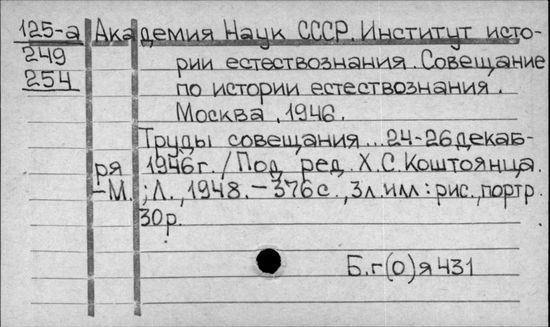 125-а Академия Наук СССР. Институт исто-
249 рии естествознания. Совещание
254 по истории естествознания.
Москва, 1946.
Труды совещания... 24-26 декаб-
ря 1946г. / Под ред. Х.С. Коштоянца.
-М.; Л., 1948. - 376с., 3л. илл: рис., портр.
30р.
Б.г(0)я431